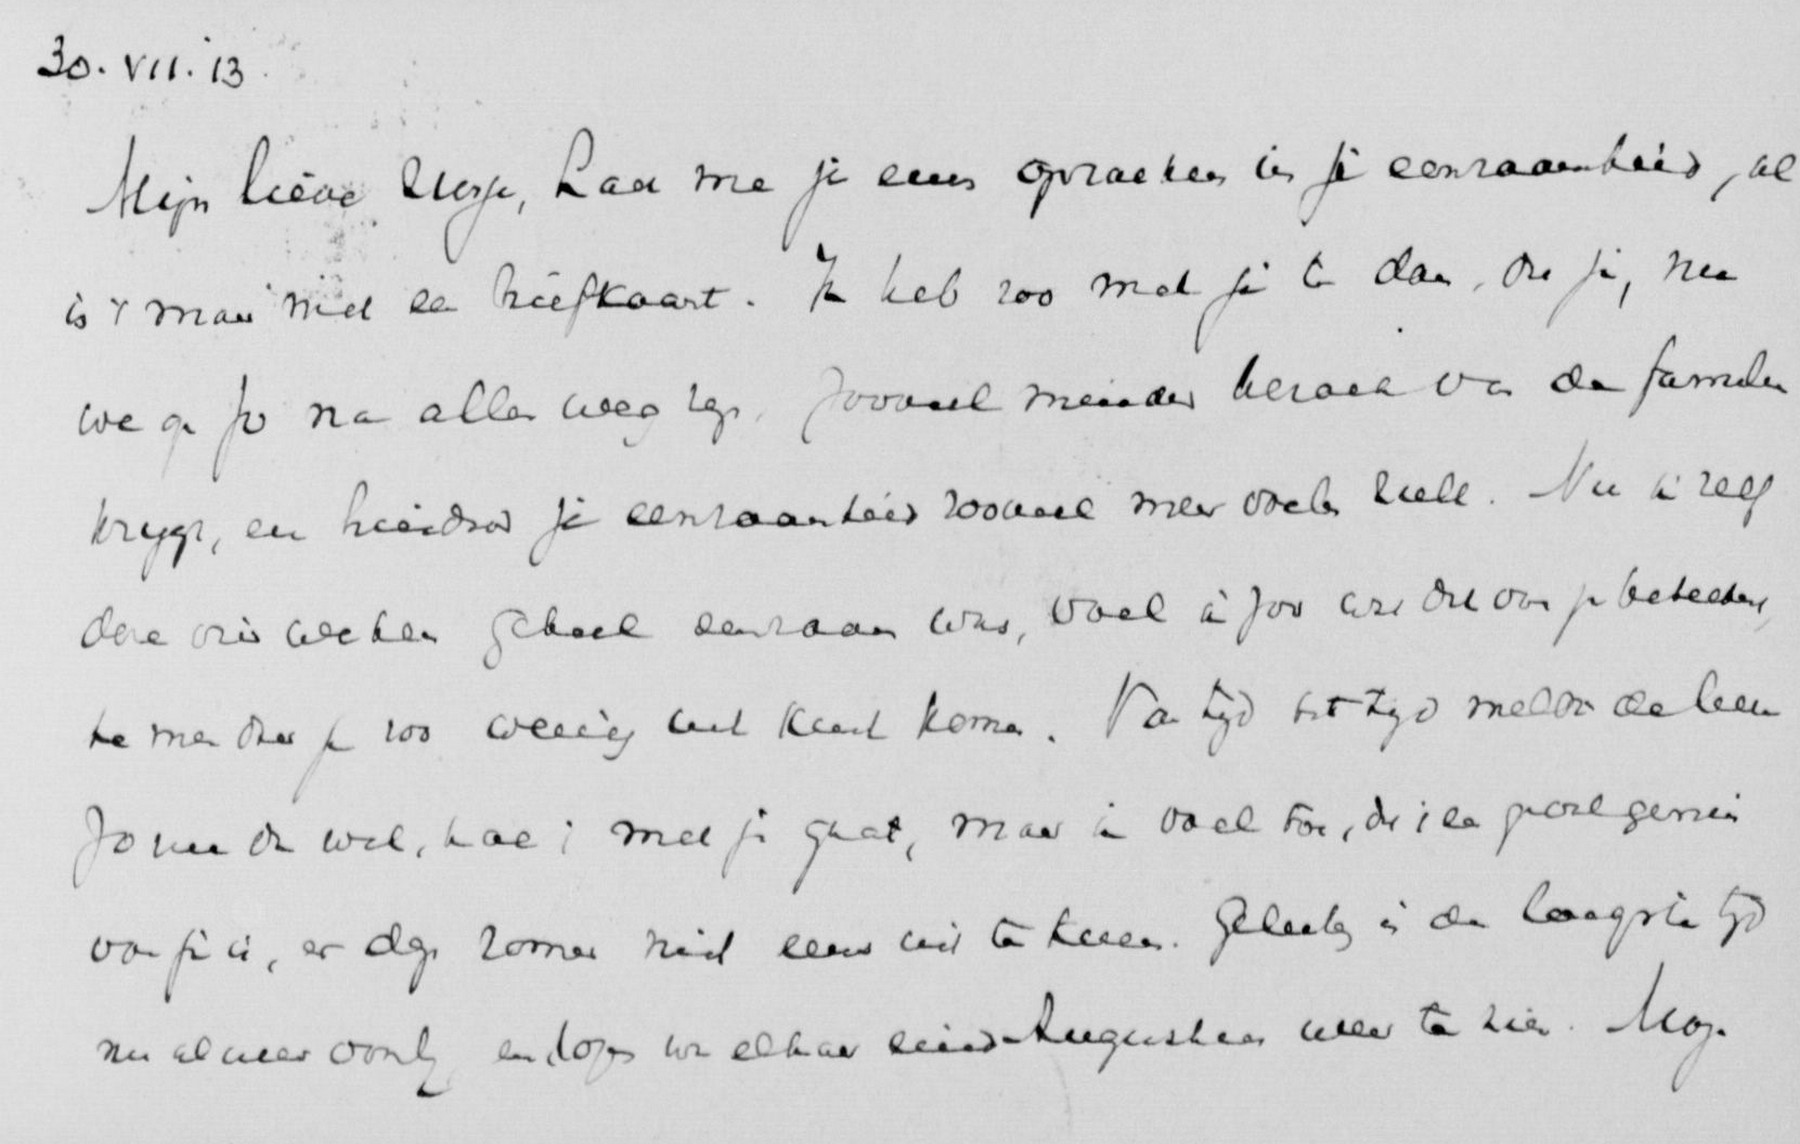 30.VII.'13
Mijn lieve Zusje, Laat me je eens opzoeken in je eenzaamheid, al
is 't maar met een briefkaart. Ik heb zoo met je te doen, dat je, nu
we op Jo na allen weg zijn, zooveel minder bezoek van de familie
krijgt, en hierdoor je eenzaamheid zooveel meer voelen zult. Nu ik zelf
deze drie weken geheel eenzaam was, voel ik pas wat dat voor je beteekent,
te meer daar je zoo weinig uit kunt komen. Van tijd tot tijd meldde
Jo me dan wel, hoe 't met je gaat, maar ik voel toe, dat 't een groot gemis
voor je is, er deze zomer niet eens uit te kunnen. Gelukkig is de langste tijd
nu alweer voorbij, en hopen we elkaar eind Augustus weer te zien. Moge